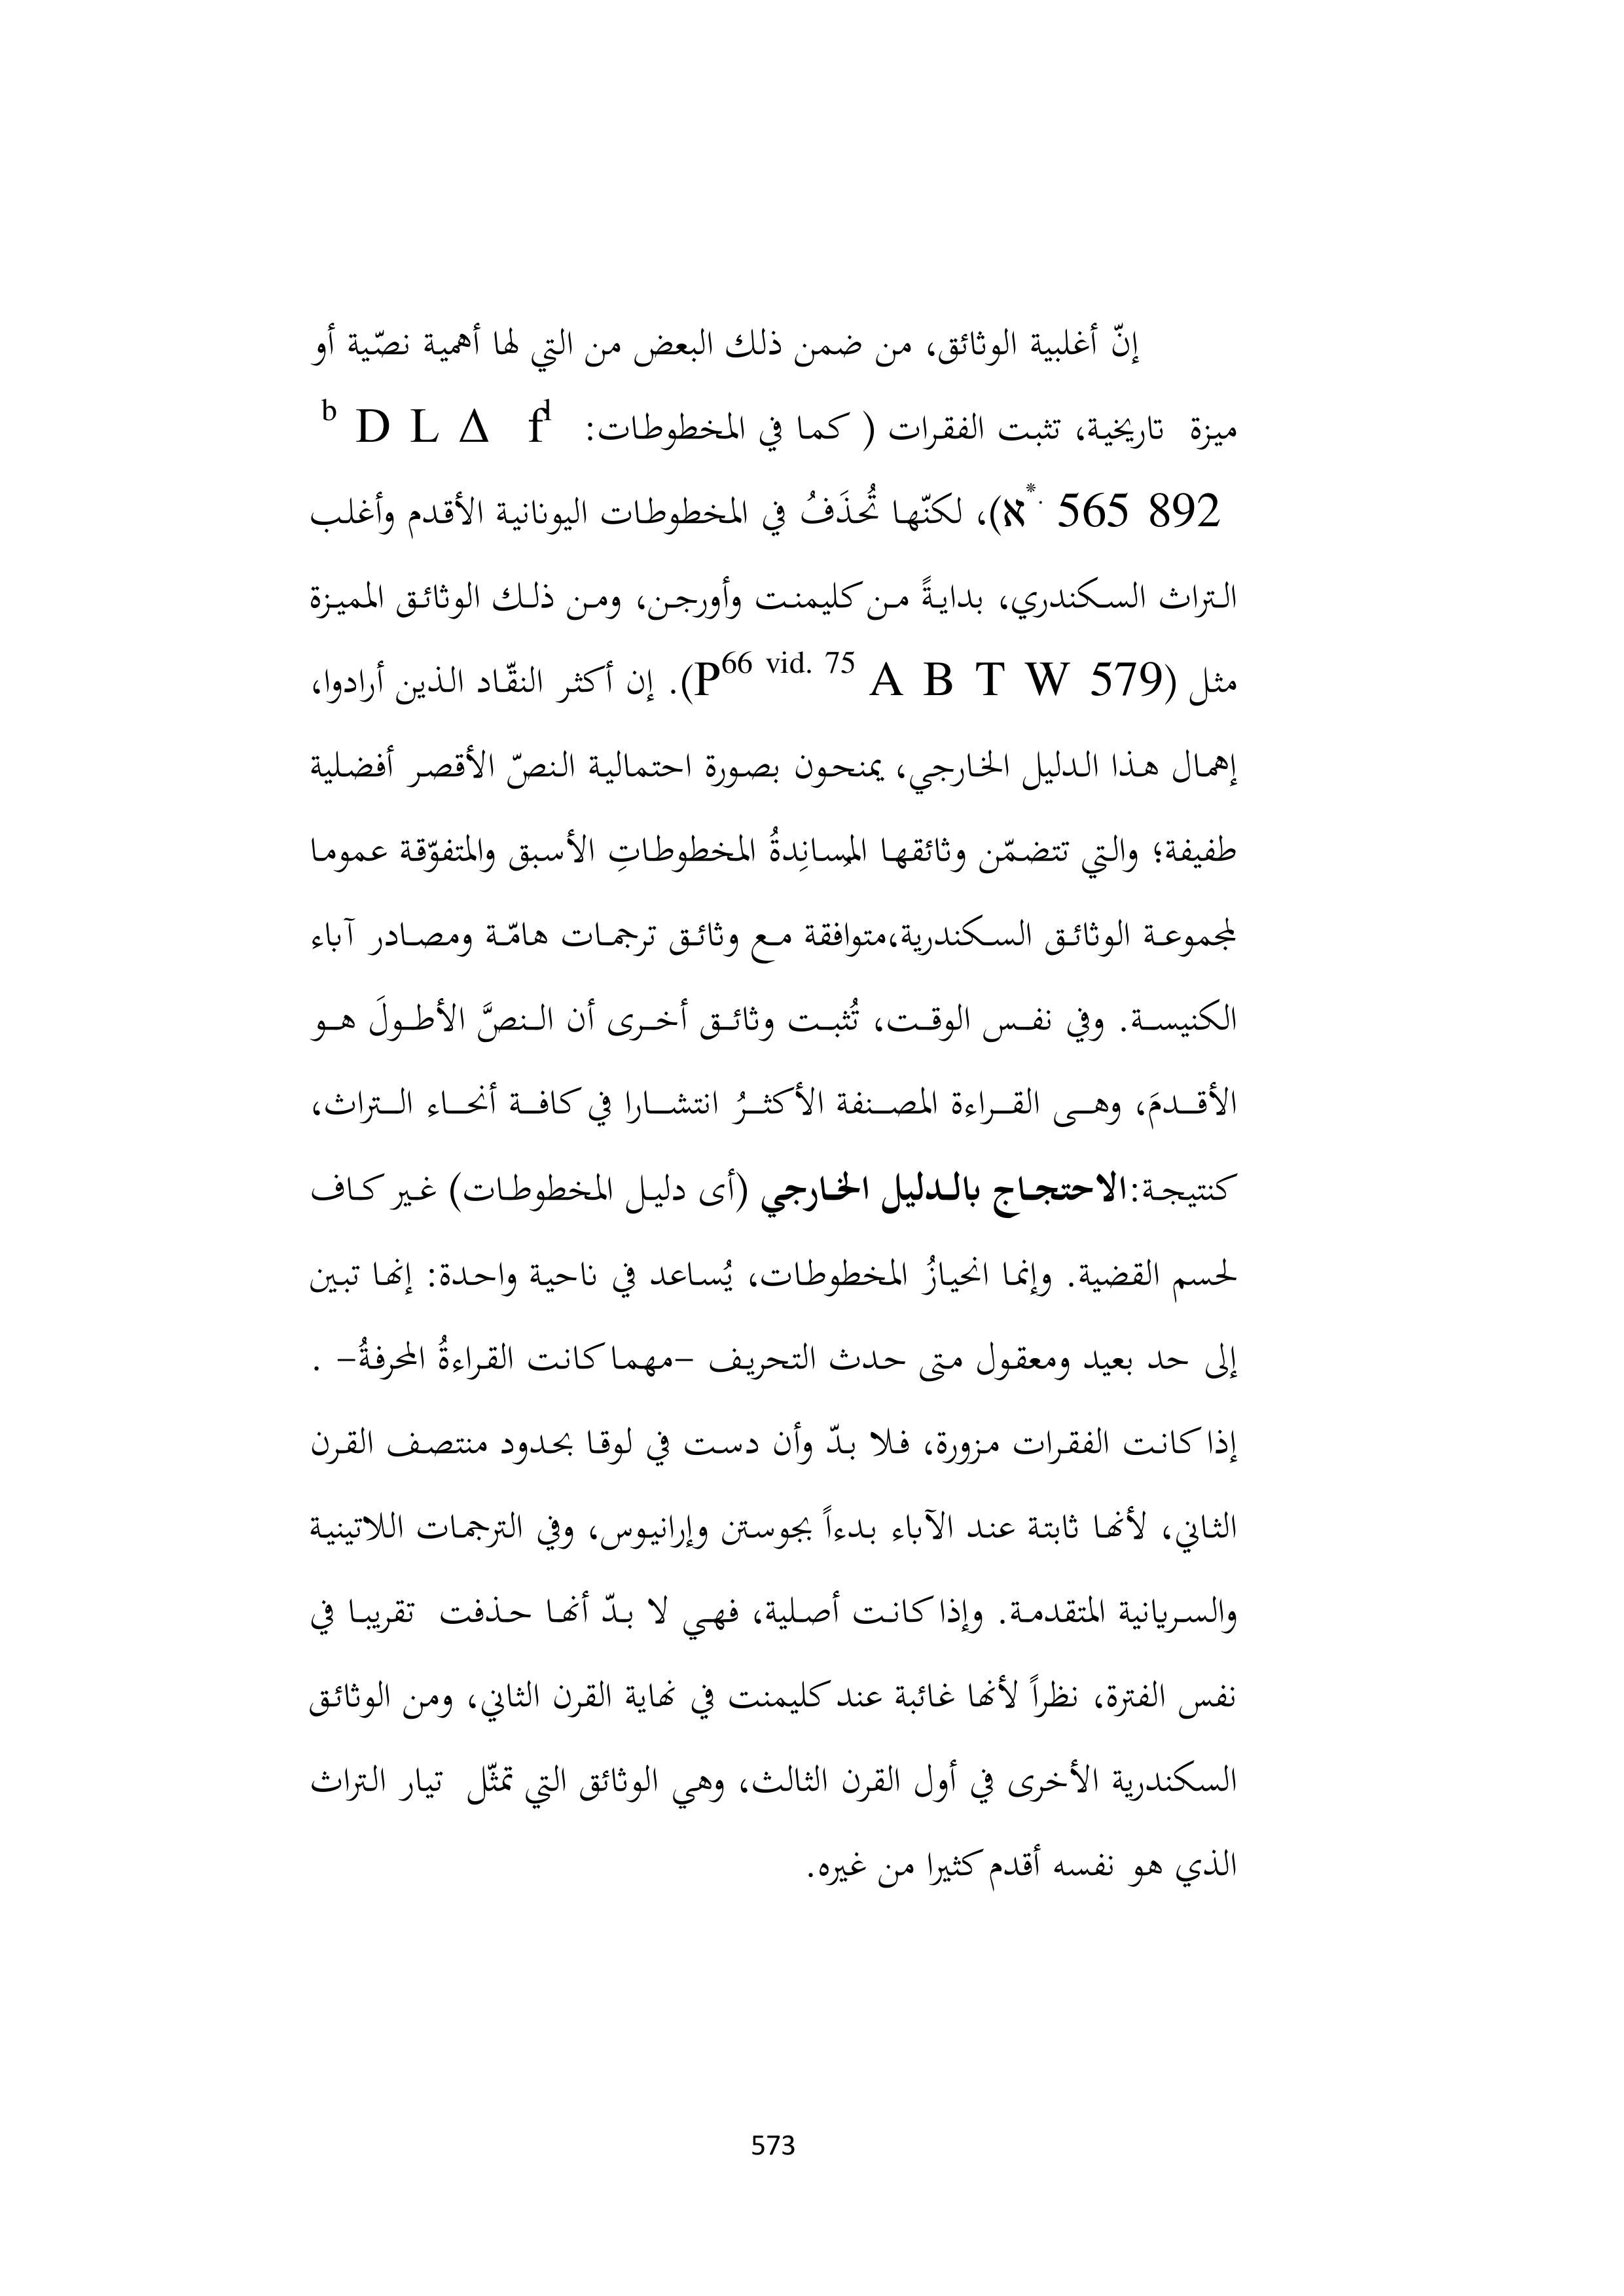 إنّ أغلبية الوثائق، من ضمن ذلك البعض من التي لها أهمية نصّية أو
ميزة تاريخية، تثبت الفقرات ( كما في المخطوطات: ᵇ D L Δ f¹
א*. 565 892)، لكنّها تُحذَفُ في المخطوطات اليونانية الأقدم وأغلب
التراث السكندري، بدايةً من كليمنت وأورجن، ومن ذلك الوثائق المميزة
مثل (P⁶⁶ ᵛⁱᵈ· ⁷⁵ A B T W 579). إن أكثر النقّاد الذين أرادوا،
إهمال هذا الدليل الخارجي، يمنحون بصورة احتمالية النصّ الأقصر أفضلية
طفيفة؛ والتي تتضمّن وثائقها المُسانِدةُ المخطوطاتِ الأسبق والمتفوّقة عموما
لمجموعة الوثائق السكندرية،متوافقة مع وثائق ترجمات هامّة ومصادر آباء
الكنيسة. وفي نفس الوقت، تُثبت وثائق أخرى أن النصَّ الأطولَ هو
الأقدمَ، وهى القراءة المصنفة الأكثرُ انتشارا في كافة أنحاء التراث،
كنتيجة:الاحتجاج بالدليل الخارجي (أى دليل المخطوطات) غير كاف
لحسم القضية. وإنما انحيازُ المخطوطات، يُساعد في ناحية واحدة: إنها تبين
إلى حد بعيد ومعقول متى حدث التحريف –مهما كانت القراءةُ المحرفةُ– .
إذا كانت الفقرات مزورة، فلا بدّ وأن دست في لوقا بحدود منتصف القرن
الثاني، لأنها ثابتة عند الآباء بدءاً بجوستن وإرانيوس، وفي الترجمات اللاتينية
والسريانية المتقدمة. وإذا كانت أصلية، فهي لا بدّ أنها حذفت تقريبا في
نفس الفترة، نظراً لأنها غائبة عند كليمنت في نهاية القرن الثاني، ومن الوثائق
السكندرية الأخرى في أول القرن الثالث، وهي الوثائق التي تمثّل تيار التراث
الذي هو نفسه أقدم كثيرا من غيره.
573